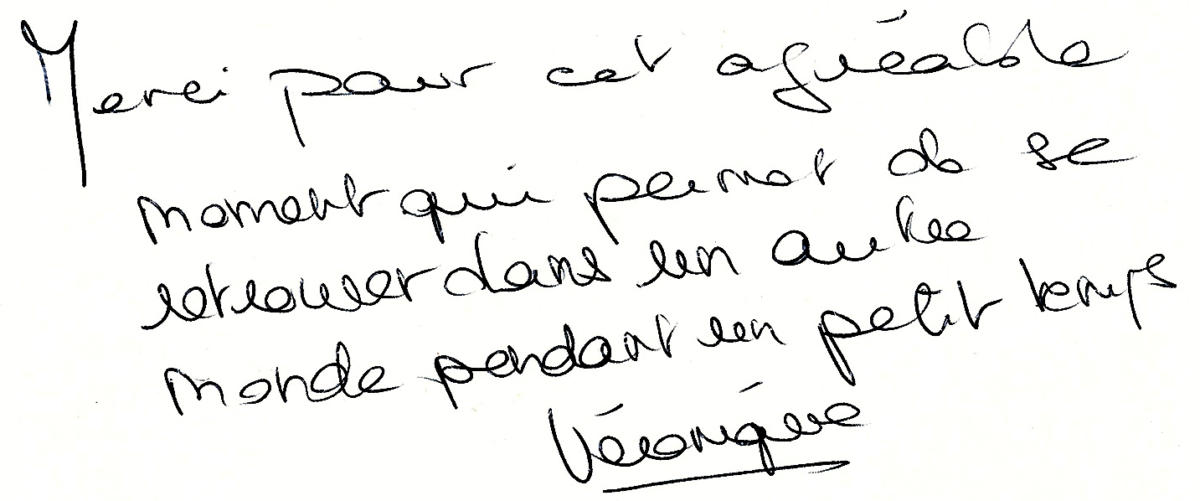 Merci pour cet agréable
moment qui permet de se
retrouver dans un autre
monde pendant un petit temps
Véronique